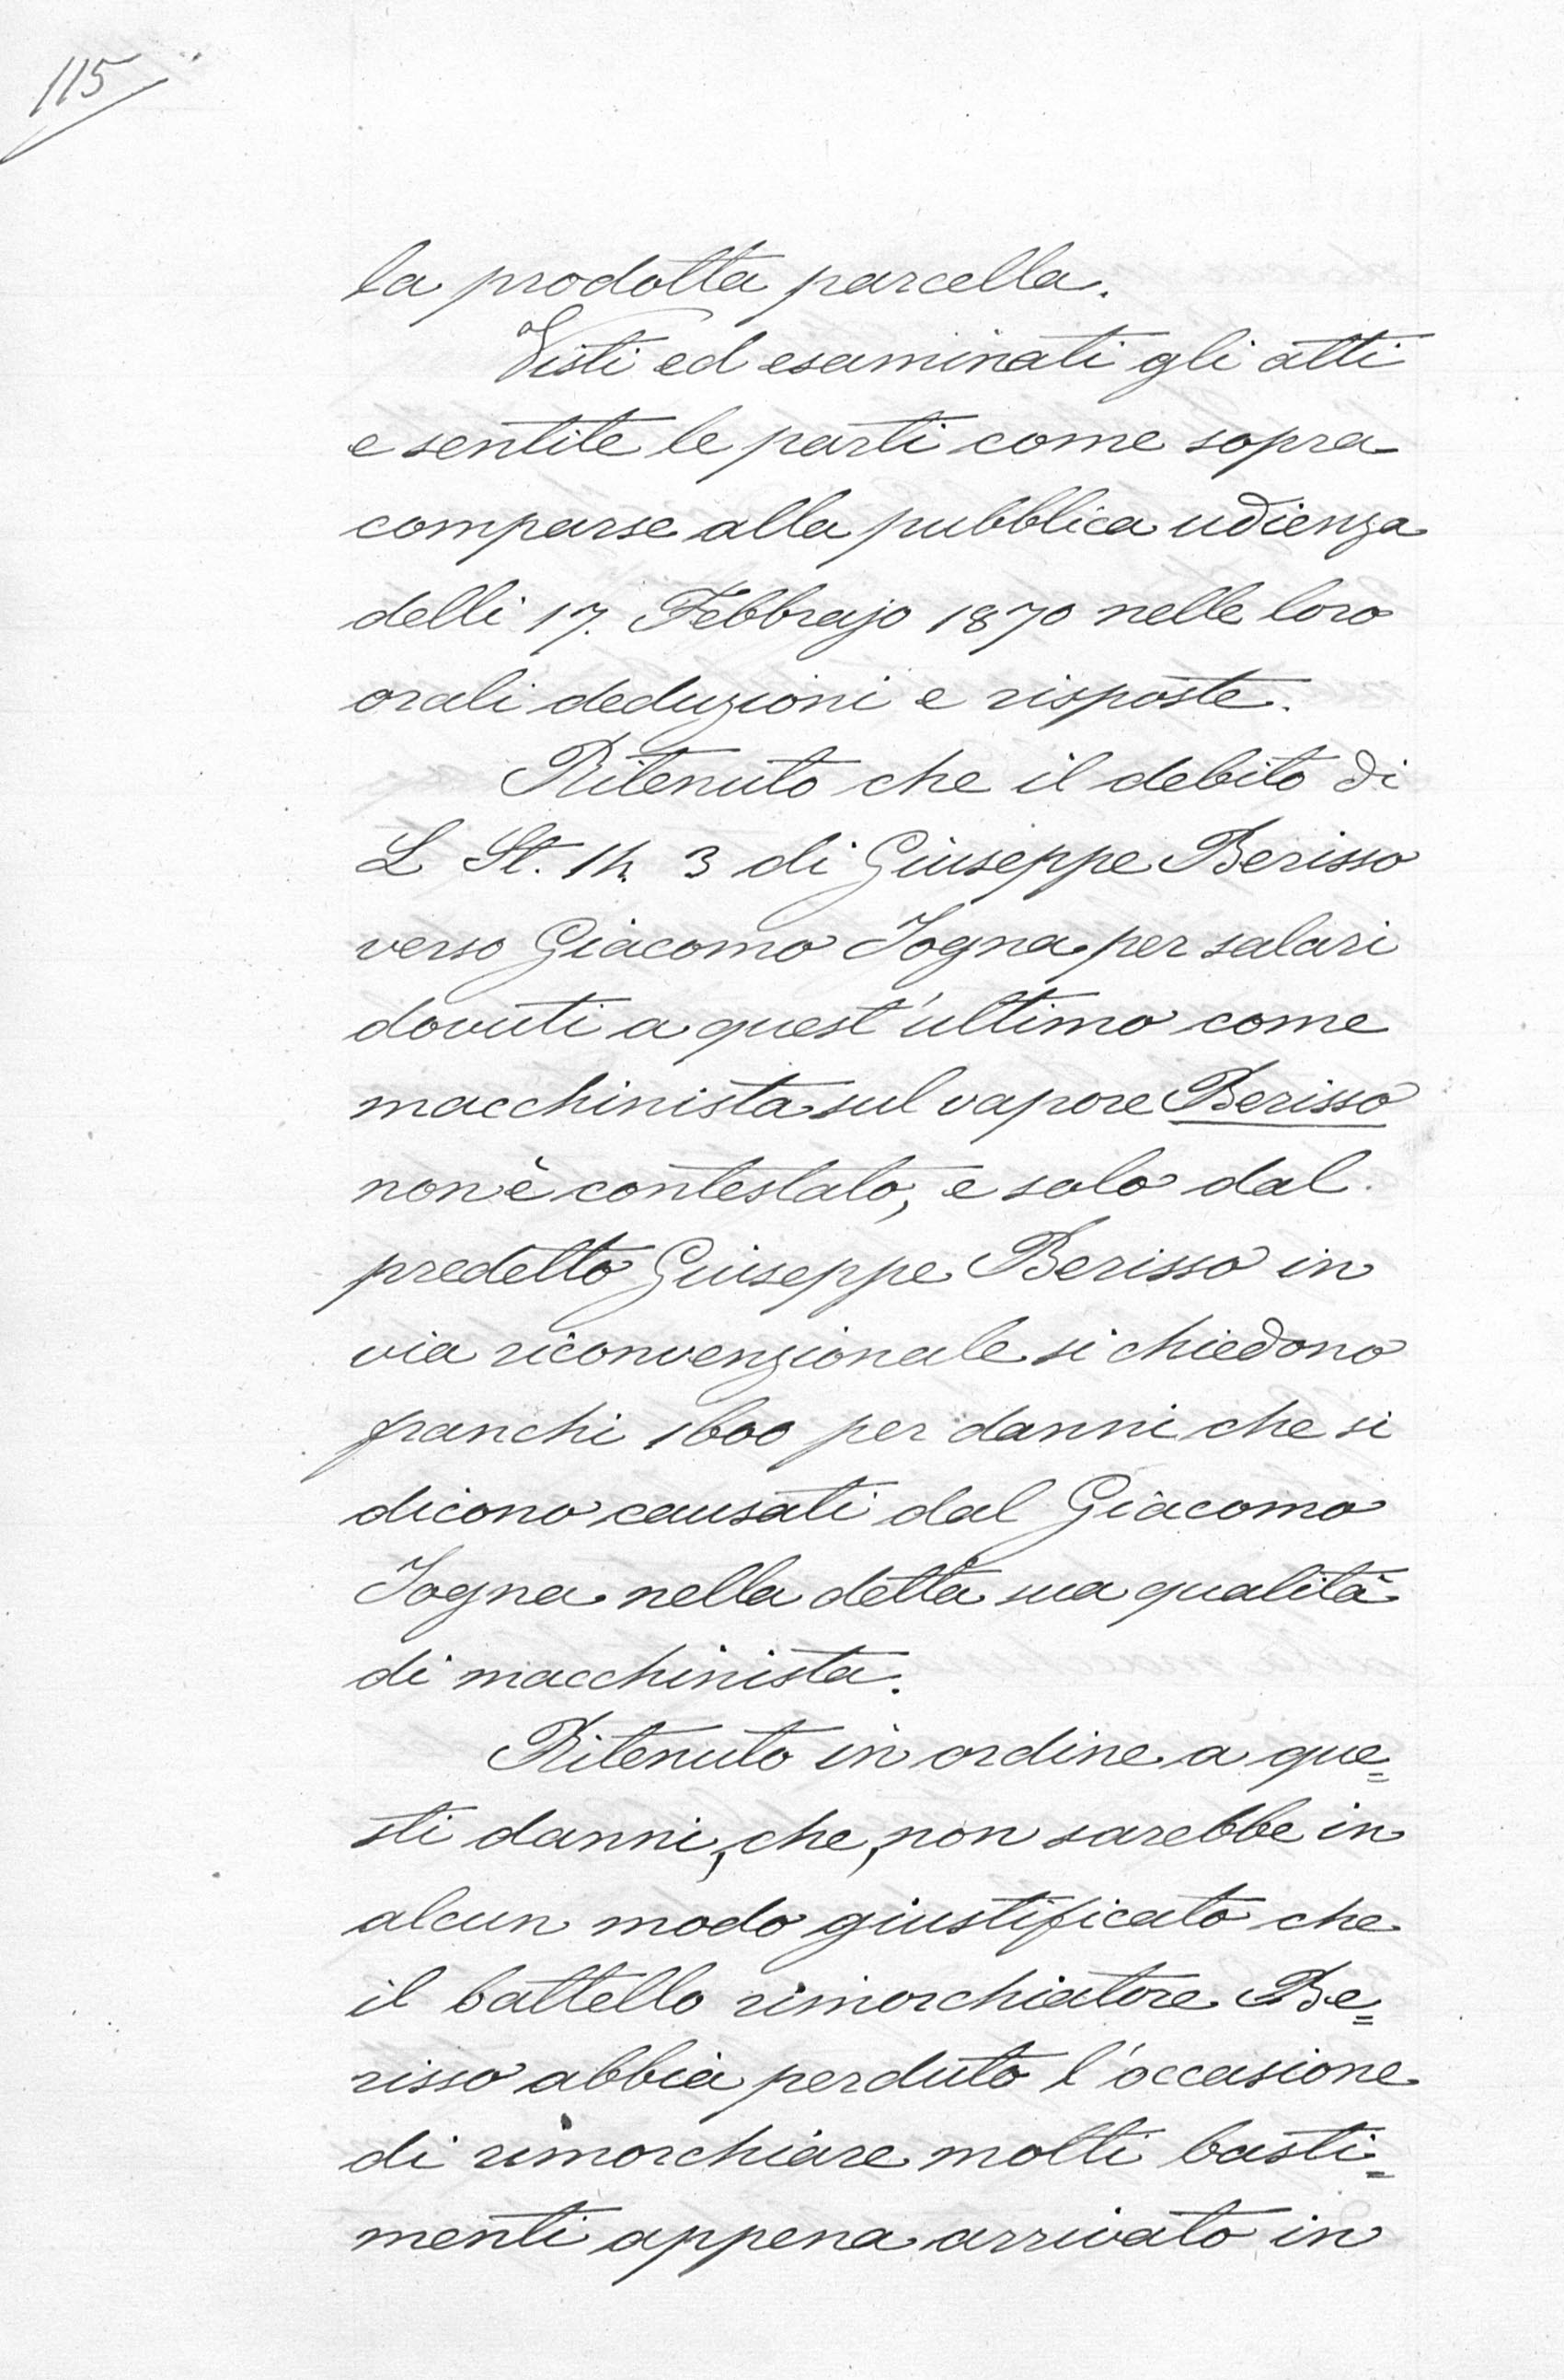 115
la prodotta parcella.
Visti ed esaminati gli atti
e sentite le parti come sopra
comparse alla pubblica udienza
delli 17. Febbrajo 1870 nelle loro
orali deduzioni e risposte.
Ritenuto che il debito di
L St. 3 di Giuseppe Berisso
verso Giacomo Jogna per salari
dovuti a quest'ultimo come
macchinista sul vapore Berisso
non è contestato, e solo dal
predetto Giuseppe Berisso in
via riconvenzionale si chiedono
franchi 1600 per danni che si
dicono causati dal Giacomo
Jogna nella detta sua qualità
di macchinista.
Ritenuto in ordine a que=
sti danni, che, non sarebbe in
alcun modo giustificato che
il battello rimorchiatore Be=
risso abbia perduto l'occasione
di rimorchiare molti basti=
menti appena arrivato in